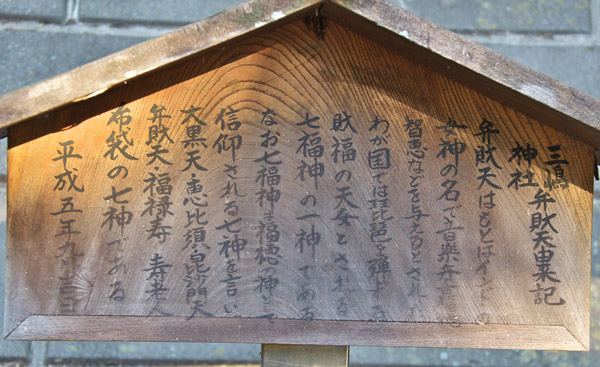 三嶋神社 弁財天由来記
弁財天はもとはインドの
女神の名で音楽弁舌
智恵などを与えるとされ
わが国では琵琶を弾じ
財福の天女とされる
七福神の一神である
なお七福神は福徳の神として
信仰される七神を言い
大黒天恵比須毘沙門天
弁財天福禄寿 寿老人
布袋の七神である
平成五年九月